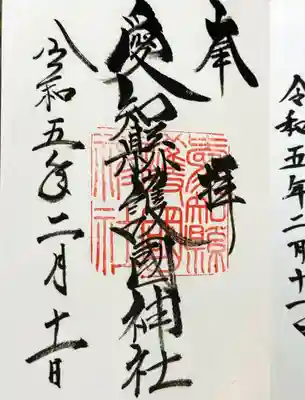 令和五年二月十一
奉拝
愛知縣護國神社
令和五年二月十一日